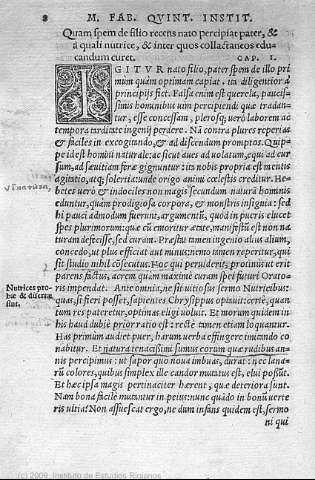 8 M. FAB. QVINT. INSTIT.
Quam spem de filio recens nato percipiat pater, &
à quali nutrice, & inter quos collactaneos edu-
candum curet. CAP. I.
IGITVR nato filio, pater spem de illo pri
mum quàm optimam capiat. ita diligentior à
principijs fiet. Falsa enim est querela, paucis-
simis hominibus uim percipiendi quæ tradan-
tur, esse concessam, plerosq; uerò laborem ac
tempora tarditate ingenij perdere. Nã contrà plures reperias
& faciles in excogitando, & ad discendum promptos. Quip-
pe id est homini naturale: ac sicut aues ad uolatum, equi ad cur
sum, ad sæuitiam feræ gignuntur: ita nobis propria est mentis
agitatio, atq; solertia: unde origo animi cœlestis creditur. He-
betes uerò & indociles non magis secundum naturã hominis
eduntur, quàm prodigiosa corpora, & monstris insignia: sed
hi pauci admodum fuerunt. argumentũ, quòd in pueris elucet
spes plurimorum: quæ cũ emoritur ætate, manifestũ est non na
turam defecisse, sed curam. Præstat tamen ingenio alius alium,
concedo, ut plus efficiat aut minus: nemo tamen reperitur, qui
sit studio nihil cõsecutus. Hoc qui peruiderit, protinus ut erit
parens factus, acrem quàm maximè curam spei futuri Orato-
ris impendat. Ante omnia, ne sit uitiosus sermo Nutricibus:
quas, si fieri posset, sapientes Chrysippus optauit: certè, quan
tum res pateretur, optimas eligi uoluit. Et morum quidem in
his haud dubiè prior ratio est: rectè tamen etiam loquantur.
Has primùm audiet puer, harum uerba effingere imitando co
nabitur. Et natura tenacissimi sumus eorum quæ rudibus an-
nis percipimus: ut sapor quo noua imbuas, durat: nec lana-
rũ colores, quibus simplex ille candor mutatus est, elui possũt.
Et hæc ipsa magis pertinaciter hærent, quæ deteriora sunt.
Nam bona facilè mutantur in peius: nunc quãdo in bonũ uerte
ris uitia? Non assuescat ergo, ne dum infans quidem est, sermo
ni qui
Nutrices pro-
bæ & discretæ
sint.
(c) 2009, Instituto de Estudios Riojanos